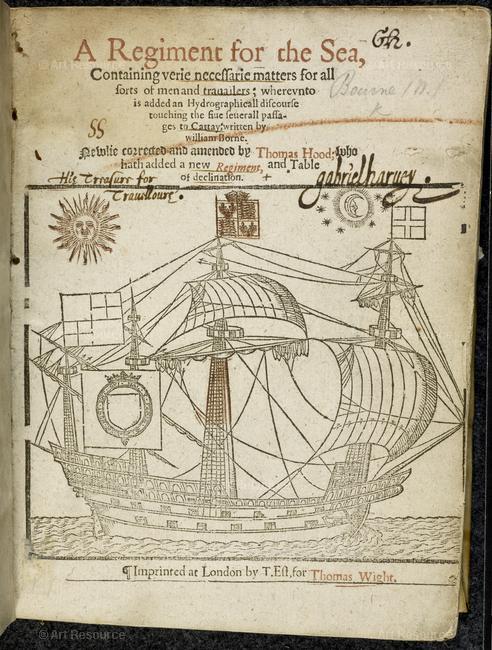 Gh.
A Regiment for the Sea,
Containing verie neceſſarie matters for all
ſorts of men and trauailers; wherevnto
is added an Hydrographicall diſcourſe
touching the fiue ſeuerall paſſa-
ges to Cattay: written by
william Borne.
Newlie corrected and amended by Thomas Hood; who
hath added a new Regiment, and Table
of declination.
Bourne (W.)
K
§§
His Treasure for
Travilours.
gabrielharuey.
¶ Imprinted at London by T. Eſt, for Thomas Wight.
© Art Resource
© Art Resource